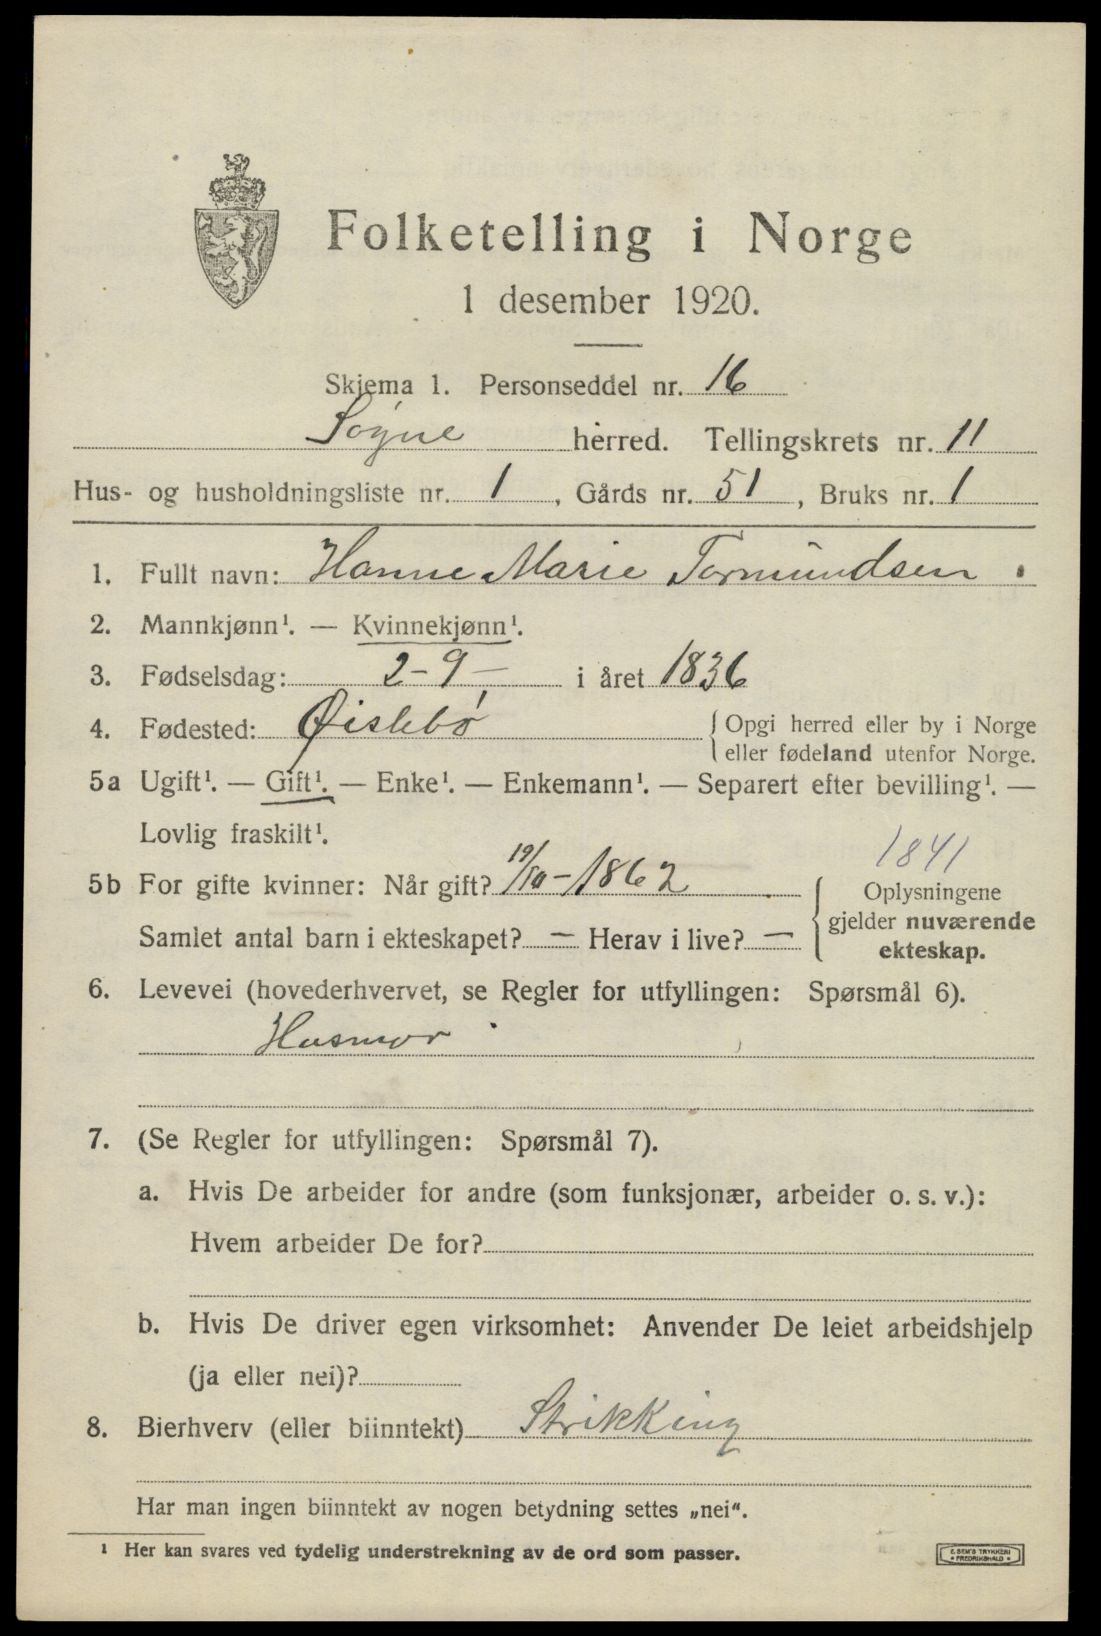 Folketelling i Norge
1 desember 1920.
Skjema 1. Personseddel nr. 16
Søgne herred. Tellingskrets nr. 11
Hus- og husholdningsliste nr. 1, Gårds nr. 51, Bruks nr. 1
1. Fullt navn: Hanne Marie Tormundsen.
2. Mannkjønn¹. — Kvinnekjønn¹.
3. Fødselsdag: 2-9- i året 1836
4. Fødested: Øislebø
{ Opgi herred eller by i Norge
eller fødeland utenfor Norge.
5a Ugift¹. — Gift¹. — Enke¹. — Enkemann¹. — Separert efter bevilling¹. —
Lovlig fraskilt¹.
1841
5b For gifte kvinner: Når gift? 19/10-1862
Samlet antal barn i ekteskapet? — Herav i live? —
{ Oplysningene
gjelder nuværende
ekteskap.
6. Levevei (hovederhvervet, se Regler for utfyllingen: Spørsmål 6).
Husmor
7. (Se Regler for utfyllingen: Spørsmål 7).
a. Hvis De arbeider for andre (som funksjonær, arbeider o. s. v.):
Hvem arbeider De for?
b. Hvis De driver egen virksomhet: Anvender De leiet arbeidshjelp
(ja eller nei)?
8. Bierhverv (eller biinntekt) Strikking
Har man ingen biinntekt av nogen betydning settes „nei“.
¹ Her kan svares ved tydelig understrekning av de ord som passer.
E. SEM'S TRYKKERI
• FREDRIKSHALD •